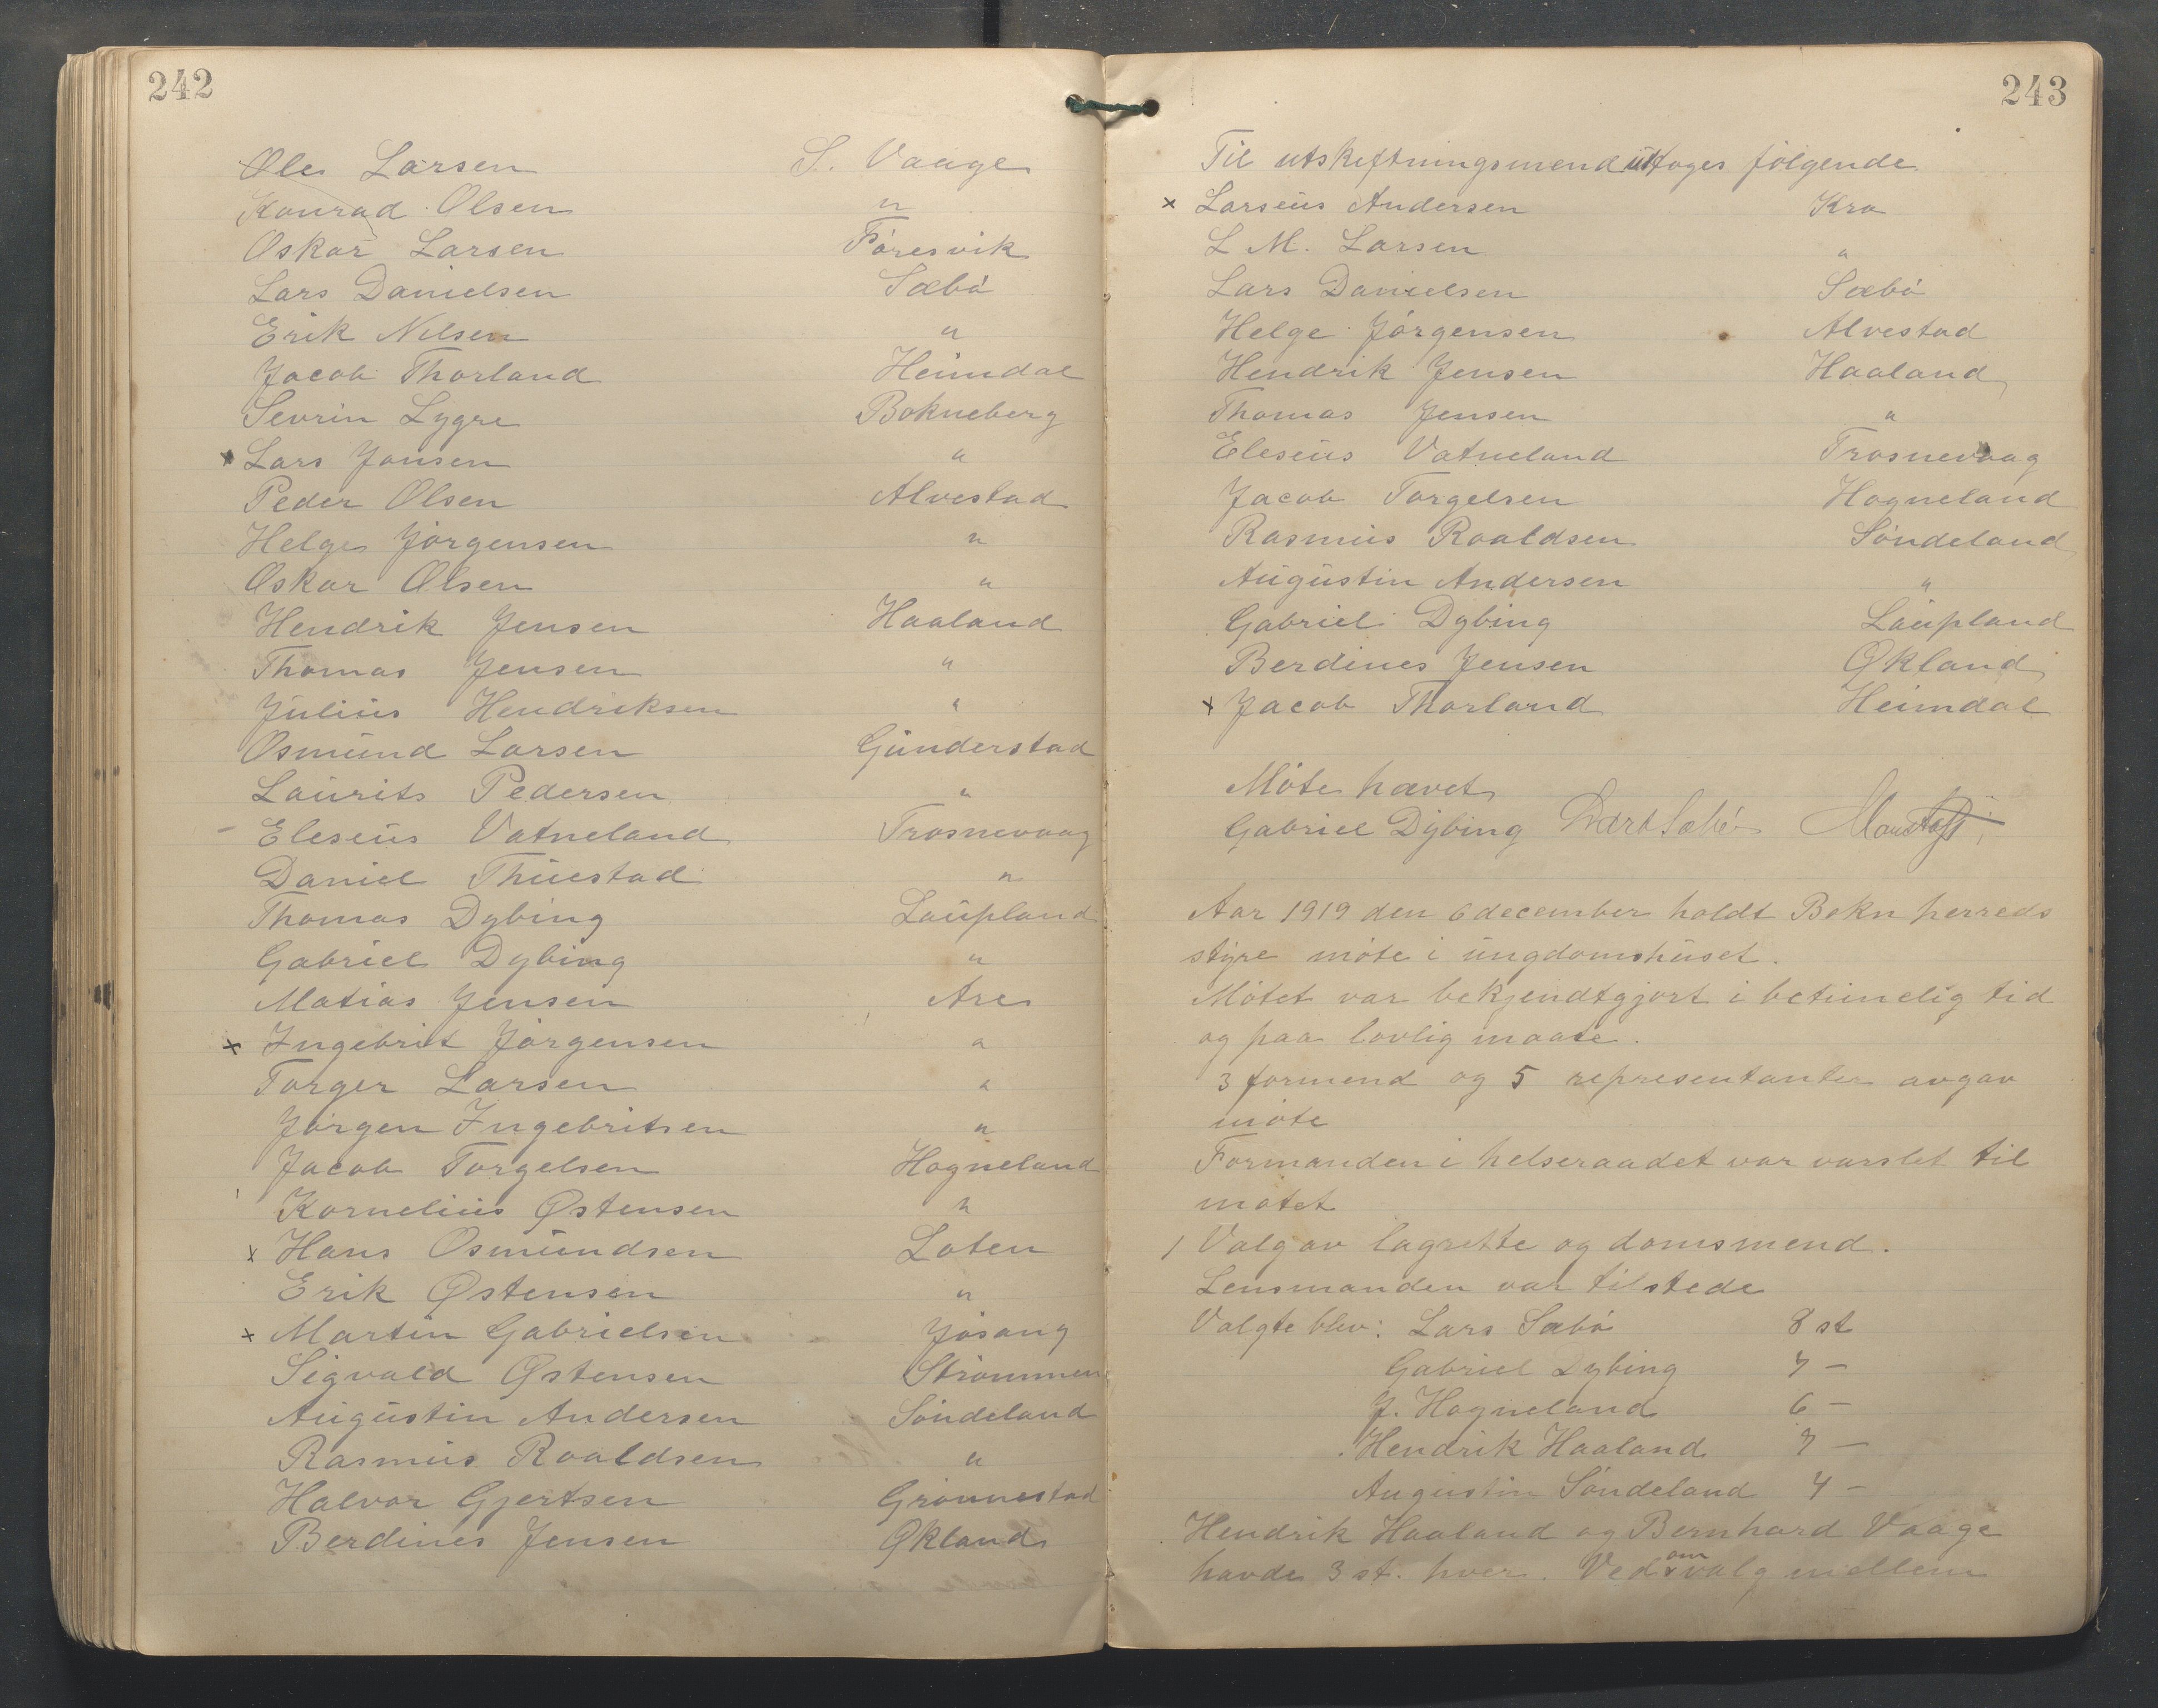 242
Ole Larsen S. Vaage
Konrad Olsen "
Oskar Larsen Føresvik
Lars Danielsen Sæbø
Erik Nilsen "
Jacob Thorland Heimdal
Sevrin Lygre Bokneberg
x Lars Jonsen "
Peder Olsen Alvestad
Helge Jørgensen "
Oskar Olsen "
Hendrik Jensen Haaland
Thomas Jensen "
Julius Hendriksen "
Osmund Larsen Gunderstad
Laurits Pedersen "
- Eleseus Vatneland Trosnevaag
Daniel Thuestad "
Thomas Dybing Laupland
Gabriel Dybing "
Matias Jensen Are
x Ingebrit Jørgensen "
Torger Larsen "
Jørgen Ingebritsen "
Jacob Torgelsen Hogneland
Kornelius Østensen "
x Hans Osmundsen Loten
Erik Østensen "
x Martin Gabrielsen Jøsang
Sigvald Østensen Strømmen
Augustin Andersen Søndeland
Rasmus Roaldsen "
Halvor Gjertsen Grønnestad
Berdines Jensen Økland
243
Til utskiftningsmend uttoges følgende
x Larseus Andersen Kro
L M. Larsen "
Lars Danielsen Sæbø
Helge Jørgensen Alvestad
Hendrik Jensen Haaland
Thomas Jensen "
Eleseus Vatneland Trosnevaag
Jacob Torgelsen Hogneland
Rasmus Roaldsen Søndeland
Augustin Andersen "
Gabriel Dybing Laupland
Berdines Jensen Økland
x Jacob Thorland Heimdal
Møte hævet
Gabriel Dybing Lars Sæbø
Aar 1919 den 6 december holdt Bokn herreds
styre møte i ungdomshuset.
Møtet var bekjendtgjort i betimelig tid
og paa lovlig maate.
3 formend og 5 representanter avgav
møte
Formanden i helseraadet var varslet til
møtet
1 Valg av lagrette og domsmend.
Lensmanden var tilstede
Valgte blev: Lars Sæbø 8 st
Gabriel Dybing 7 –
J. Hogneland 6 –
Hendrik Haaland 7 –
Augustin Søndeland 4 –
Hendrik Haaland og Bernhard Vaage
havde 3 st. hver. Ved omvalg mellem